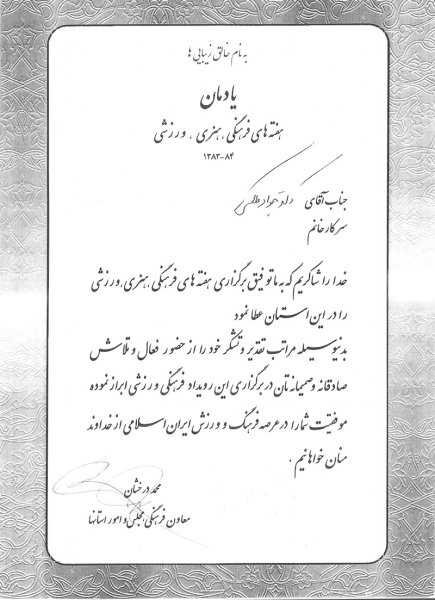 به نام خالق زیبایی ها
یادمان
هفته های فرهنگی، هنری، ورزشی
۱۳۸۳-۸۴
جناب آقای
سرکار خانم
خدا را شاکریم که به ما توفیق برگزاری هفته های فرهنگی، هنری، ورزشی
را در این استان عطا نمود
بدینوسیله مراتب تقدیر و تشکر خود را از حضور فعال و تلاش
صادقانه و صمیمانه تان در برگزاری این رویداد فرهنگی ورزشی ابراز نموده
موفقیت شما را در عرصه فرهنگ و ورزش ایران اسلامی از خداوند
منان خواهانیم .
محمد درخشان
معاون فرهنگی، مجلس و امور استانها